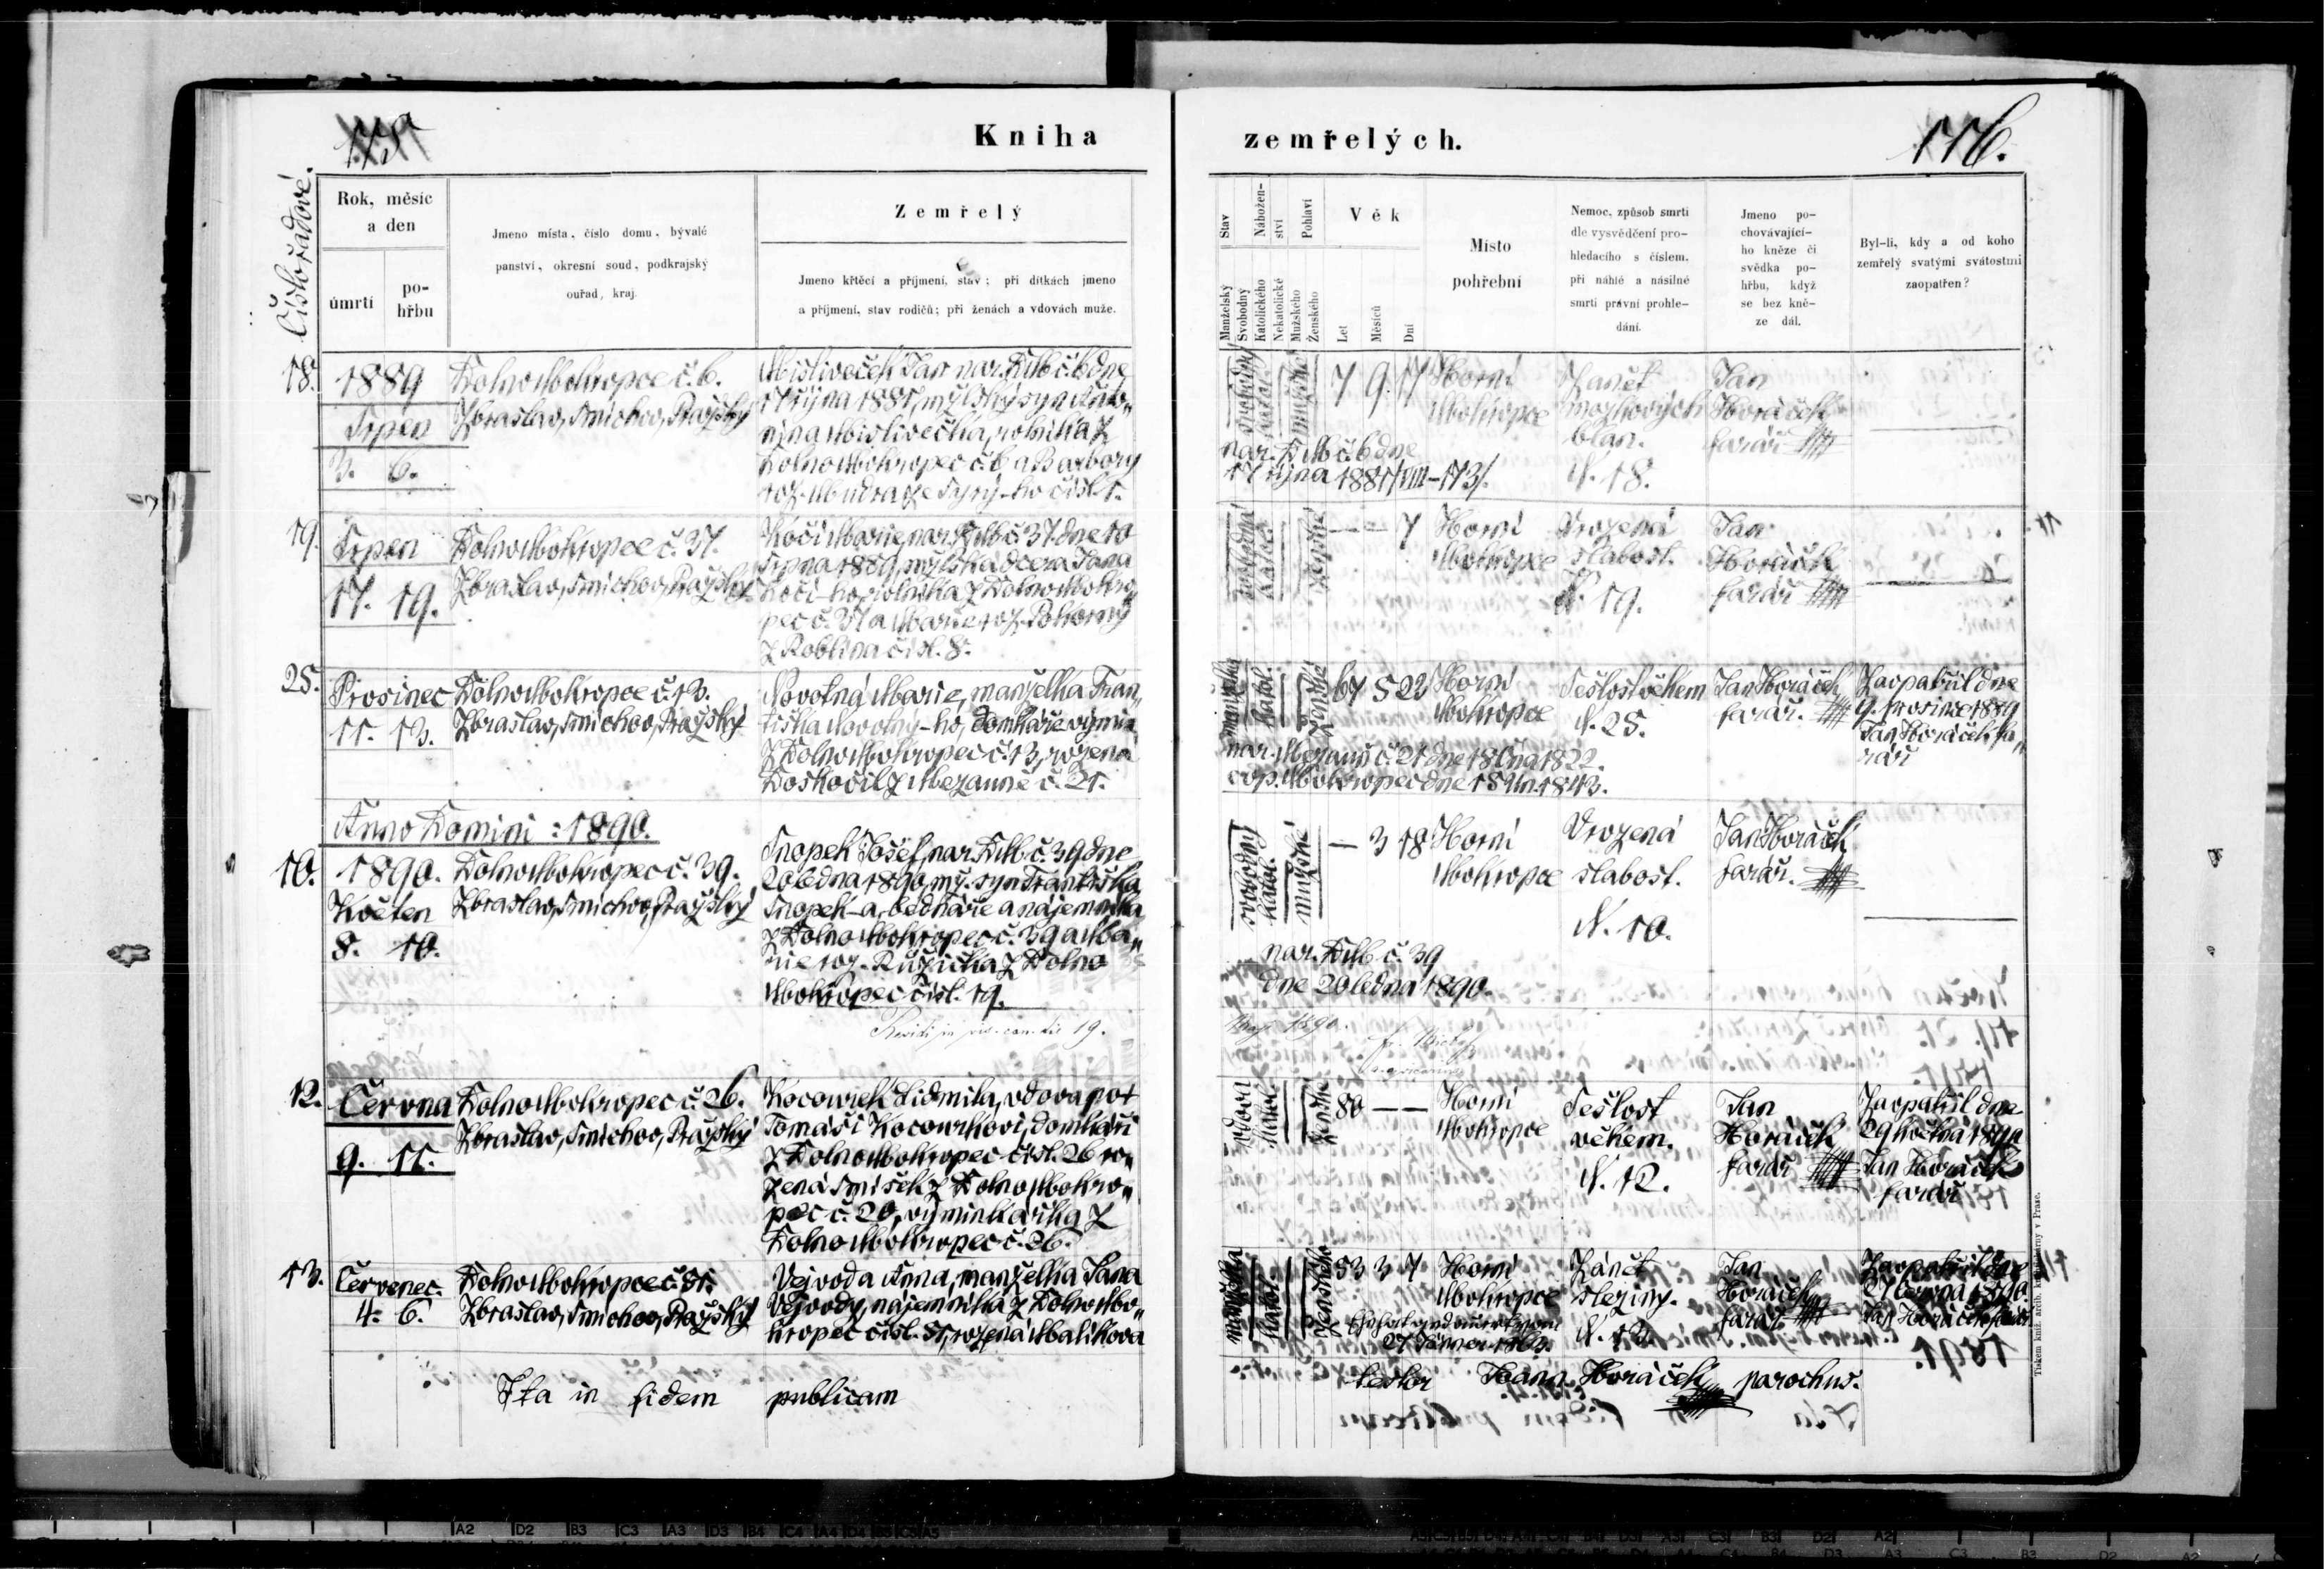 115
Kniha
zemřelých.
116.
Číslo řadové.
Rok, měsíc
a den
úmrtí
po-
hřbu
Jmeno místa, číslo domu, bývalé
panství, okresní soud, podkrajský
ouřad, kraj.
Zemřelý
Jmeno křtěcí a příjmení, stav; při dítkách jmeno
a příjmení, stav rodičů; při ženách a vdovách muže.
Stav
Manželský
Svobodný
Nábožen-
ství
Katolického
Nekatolické
Pohlaví
Mužského
Ženského
Věk
Let
Měsíců
Dní
Místo
pohřební
Nemoc, způsob smrti
dle vysvědčení pro-
hledacího s číslem,
při náhlé a násilné
smrti právní prohle-
dání.
Jmeno po-
chovávající-
ho kněze či
svědka po-
hřbu, když
se bez kně-
ze dál.
Byl-li, kdy a od koho
zemřelý svatými svátostmi
zaopatřen?
18.
1889
Srpen
3. 6.
Dolno Mokropce č. 6.
Zbraslav, Smíchov, Pražský
Misliveček Jan nar. D.M. č. 6 dne
17 října 1881, mžlský syn Anto„
nína Mislivečka, rolníka z
Dolno Mokropec č. 6 a Barbory
roz. Mudra ze
svobodný
katol.
mužské
7 9 17
Horní
Mokropce
Zánět
mozkových
blan.
N. 18.
Jan
Horáček
farář
nar. D.M. č. 6 dne
17 října 1881/VIII-173/.
19.
Srpen
17. 19.
Dolno Mokropce č. 37.
Zbraslav, Smíchov, Pražský
Kočí Marie, nar. D.M. č. 37. dne 10
srpna 1889, mžlská dcera Jana
Kočí-ho, rolníka z Dolno Mokro„
pec č. 37 a Marie roz. Pokorný
z Roblína čísl. 8.
svobodná
katol.
ženské
— — 7
Horní
Mokropce
Vrozená
slabost.
N. 19.
Jan
Horáček
farář
25.
Prosinec
11. 13.
Dolno Mokropce č. 13.
Zbraslav, Smíchov, Pražský
Novotná Marie, manželka Fran„
tiška Novotný-ho, domkáře
z Dolno Mokropec č. 13, rozená
Doskočil z Mezauně č. 21.
manželka
katol.
ženské
67 5 23
Horní
Mokropce
Sešlost věkem
N. 25.
Jan Horáček
farář.
Zaopatřil dne
9. prosince 1889
Jan Horáček fa„
rář
nar. Mezauň č. 21 dne 18
cop. Mokropec dne 1843.
Anno Domini : 1890.
10.
1890.
Květen
8. 10.
Dolno Mokropec č. 39.
Zbraslav, Smíchov, Pražský
Snopek Josef, nar. D.M. č. 39 dne
20 ledna 1890, mž. syn Františka
Snopek-a, bednáře a nájemníka
z Dolno Mokropec č. 39 a Ma„
rie roz. Růžička z Dolno
Mokropec čísl. 19.
svobodný
katol.
mužské
— 3 18
Horní
Mokropce
Vrozená
slabost.
N. 10.
Jan Horáček
farář.
nar. D.M. č. 39
dne 20 ledna 1890.
19.
1890.
12.
Června
9. 11.
Dolno Mokropec č. 26.
Zbraslav, Smíchov, Pražský
Kocourek Lidmila, vdova po †
Tomáši Kocourkovi, domkáři
z Dolno Mokropec čísl. 26 ro„
zená Smíšek z Dolno Mokro„
pec č. 20, výminkářka z
Dolno Mokropec č. 26.
vdova
katol.
ženské
80 — —
Horní
Mokropce
Sešlost
věkem.
N. 12.
Jan
Horáček
farář
Zaopatřil dne
29 května 1890
Jan Horáček
farář
13.
Červenec.
4. 6.
Dolno Mokropce č. 51.
Zbraslav, Smíchov, Pražský
Vejvoda Anna, manželka Jana
Vejvody, nájemníka z Dolno Mo„
kropec čísl. 51, rozená Malíkova
manželka
katol.
ženského
53 3 7
Horní
Mokropce
Zánět
sleziny.
N. 13.
Jan
Horáček
farář
Zaopatřil dne
27 června 1890
Jan Horáček farář
27 Jänner 1863.
Ita in fidem publicam
testor Joann Horáček parochus.
Tiskem kníž. arcib. knihtiskárny v Praze.